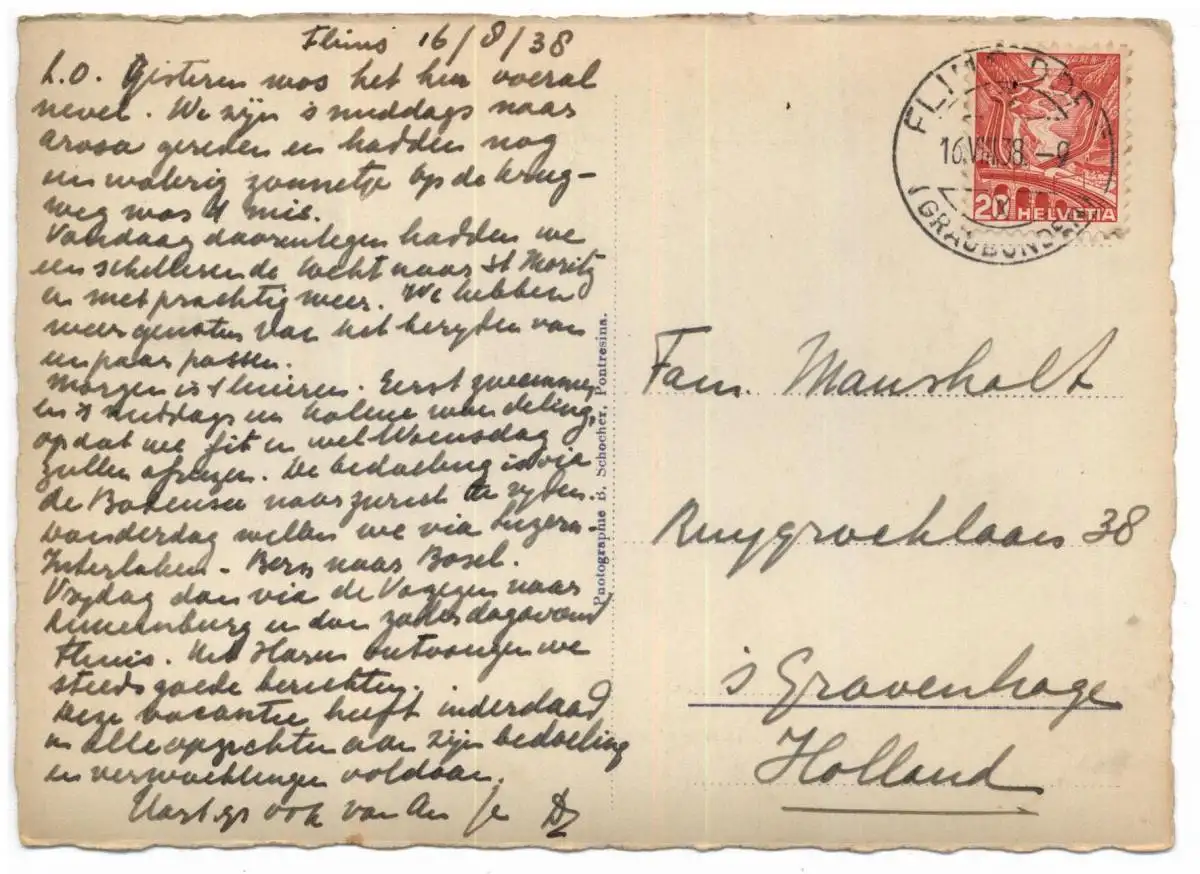 Flims 16/8/38
L.O. Gisteren was het hier vooral
nevel. We zijn 's middags naar
Arosa gereden en hadden nog
een waterig zonnetje op de
weg was 't mis.
Vandaag daarentegen hadden we
een schitterende tocht naar St Moritz
en met prachtig weer. We hebben
weer genoten van het beryden van
een paar passen.
Morgen is 't luieren. Eerst zwemmen
en 's middags een kalme wandeling,
opdat we fit en wel Woensdag
zullen afreizen. De bedoeling is via
de Bodensee naar Zurich te ryden.
Donderdag willen we via Luzern
Interlaken - Bern naar Basel.
Vrydag dan via de Vogezen naar
Luxemburg en dan zaterdagavond
thuis. Uit Haren ontvangen we
steeds goede berichten.
Deze vacantie heeft inderdaad
in alle opzichten aan zijn bedoeling
en verwachtingen voldaan.
Hart. gr. ook van
Photographie B. Schocher, Pontresina.
FLIMS DORF
16.VIII.38.-9
(GRAUBÜNDEN)
20 HELVETIA
Fam. Mansholt
Ruygrocklaan 38
's Gravenhage
Holland